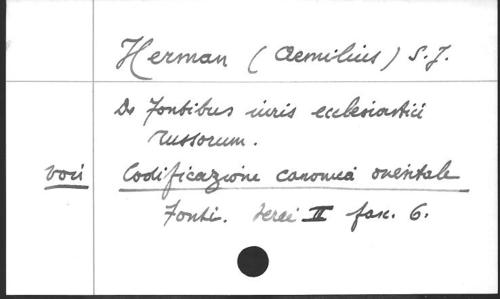 Herman (Aemilius) S.J.
De fontibus iuris ecclesiastici
russorum.
voir Codificazione canonica orientale
Fonti. Serei II fasc. 6.